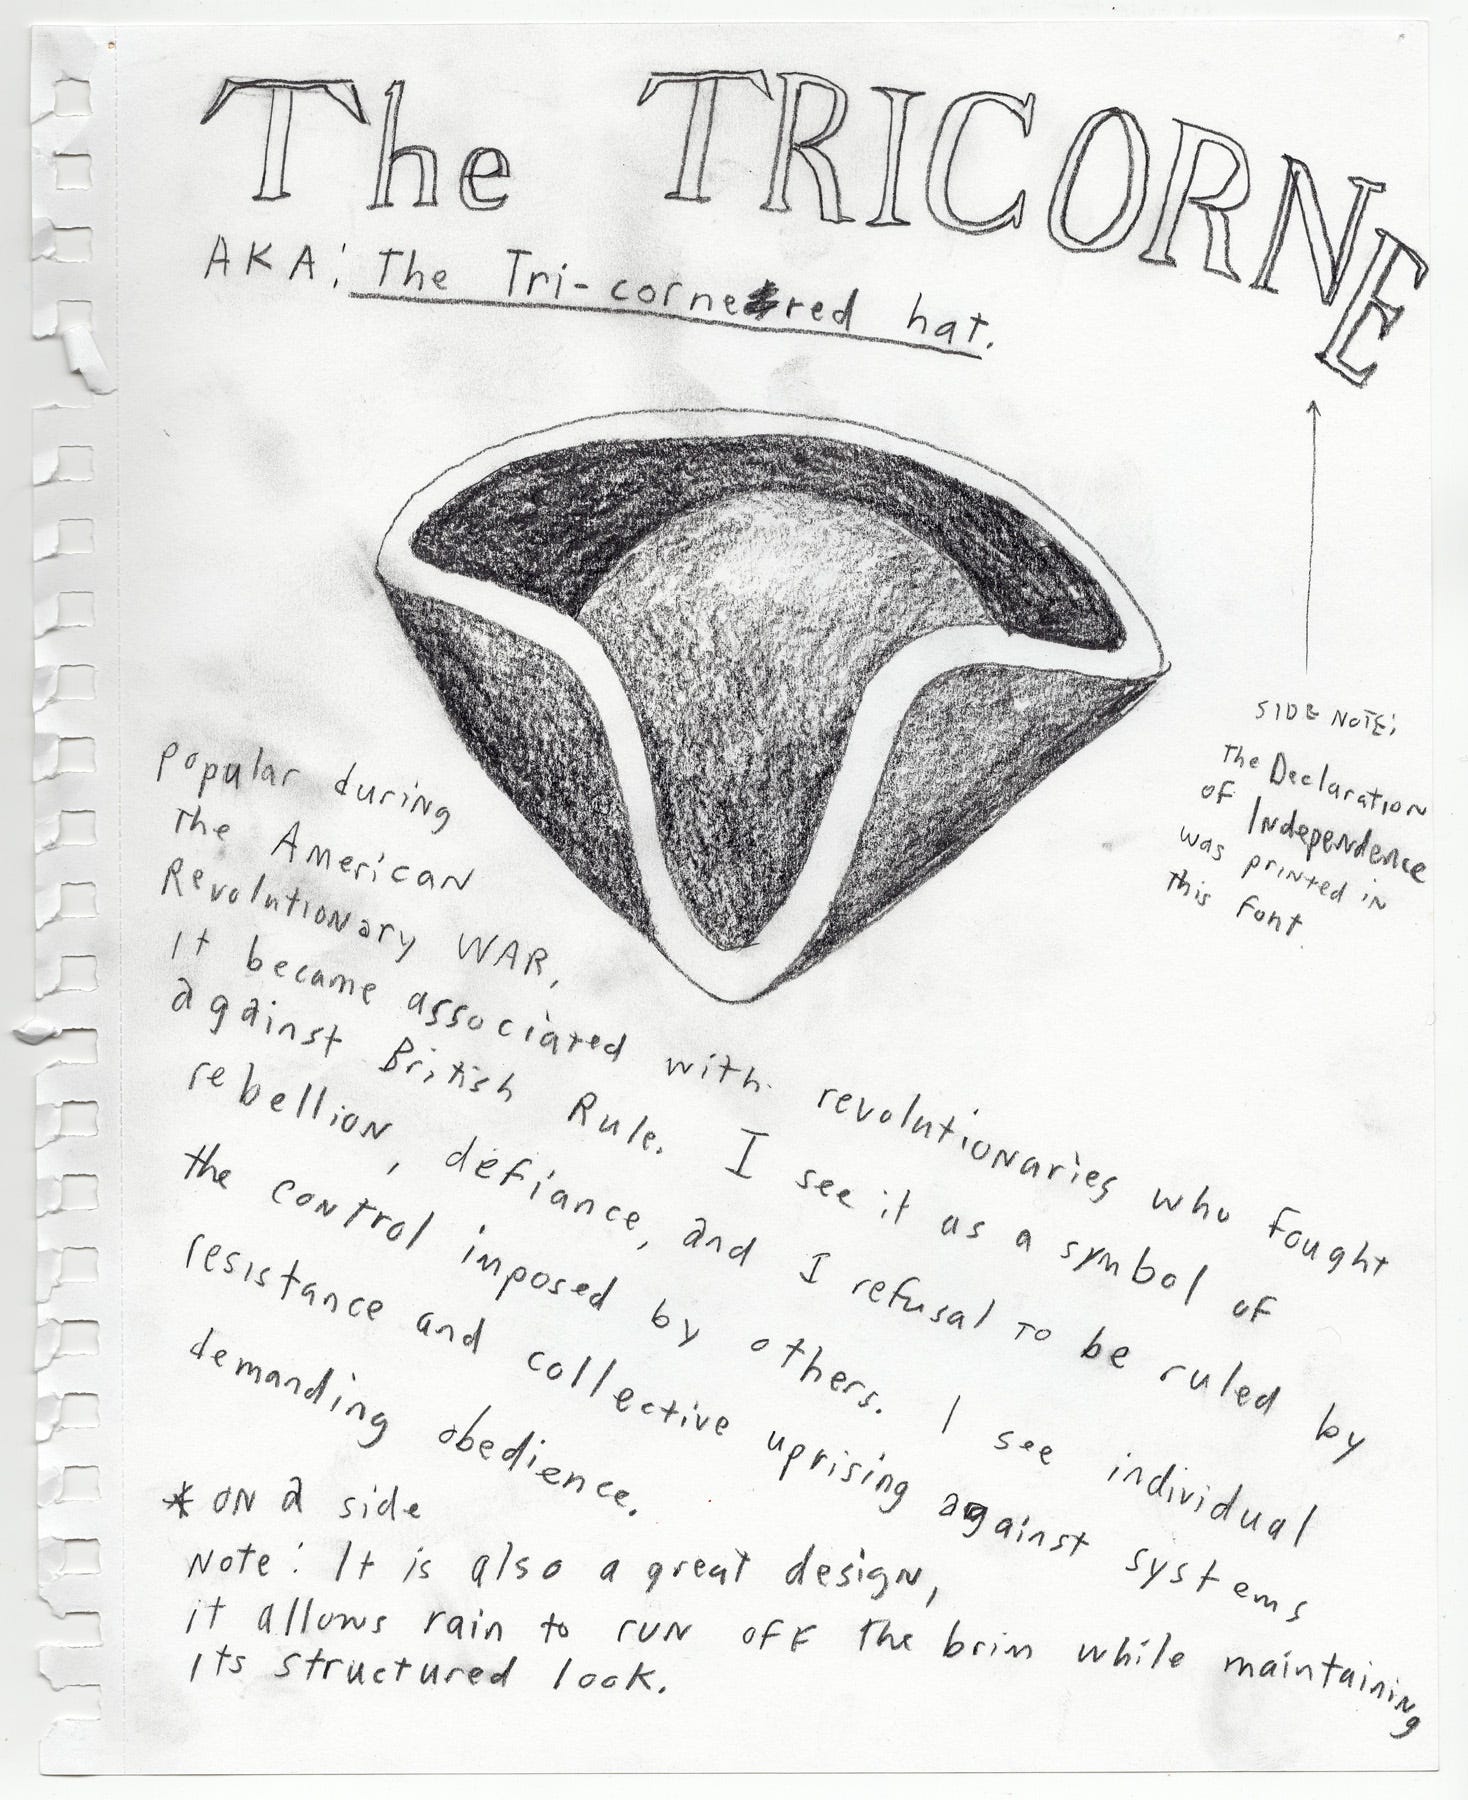 The TRICORNE
AKA: The Tri-cornered hat.
SIDE NOTE:
The Declaration
of Independence
was printed in
this font.
Popular during
The American
Revolutionary WAR,
It became associated with revolutionaries who fought
against British Rule. I see it as a symbol of
rebellion, defiance, and I refusal to be ruled by
the control imposed by others. I see individual
resistance and collective uprising against systems
demanding obedience.
* ON a side
Note: It is also a great design,
it allows rain to run off the brim while maintaining
its structured look.